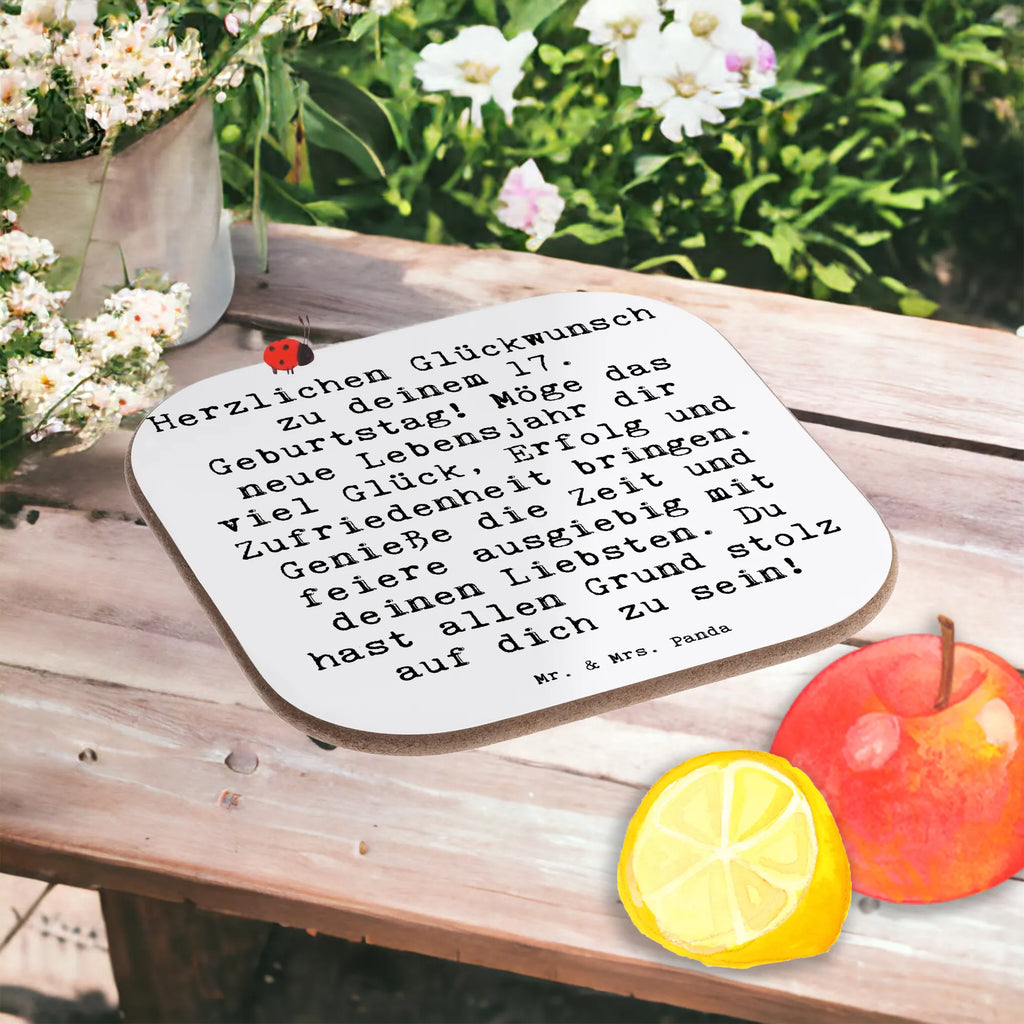 Herzlichen Glückwunsch
zu deinem 17.
Geburtstag! Möge das
neue Lebensjahr dir
viel Glück, Erfolg und
Zufriedenheit bringen.
Genieße die Zeit und
feiere ausgiebig mit
deinen Liebsten. Du
hast allen Grund stolz
auf dich zu sein!
Mr. & Mrs. Panda